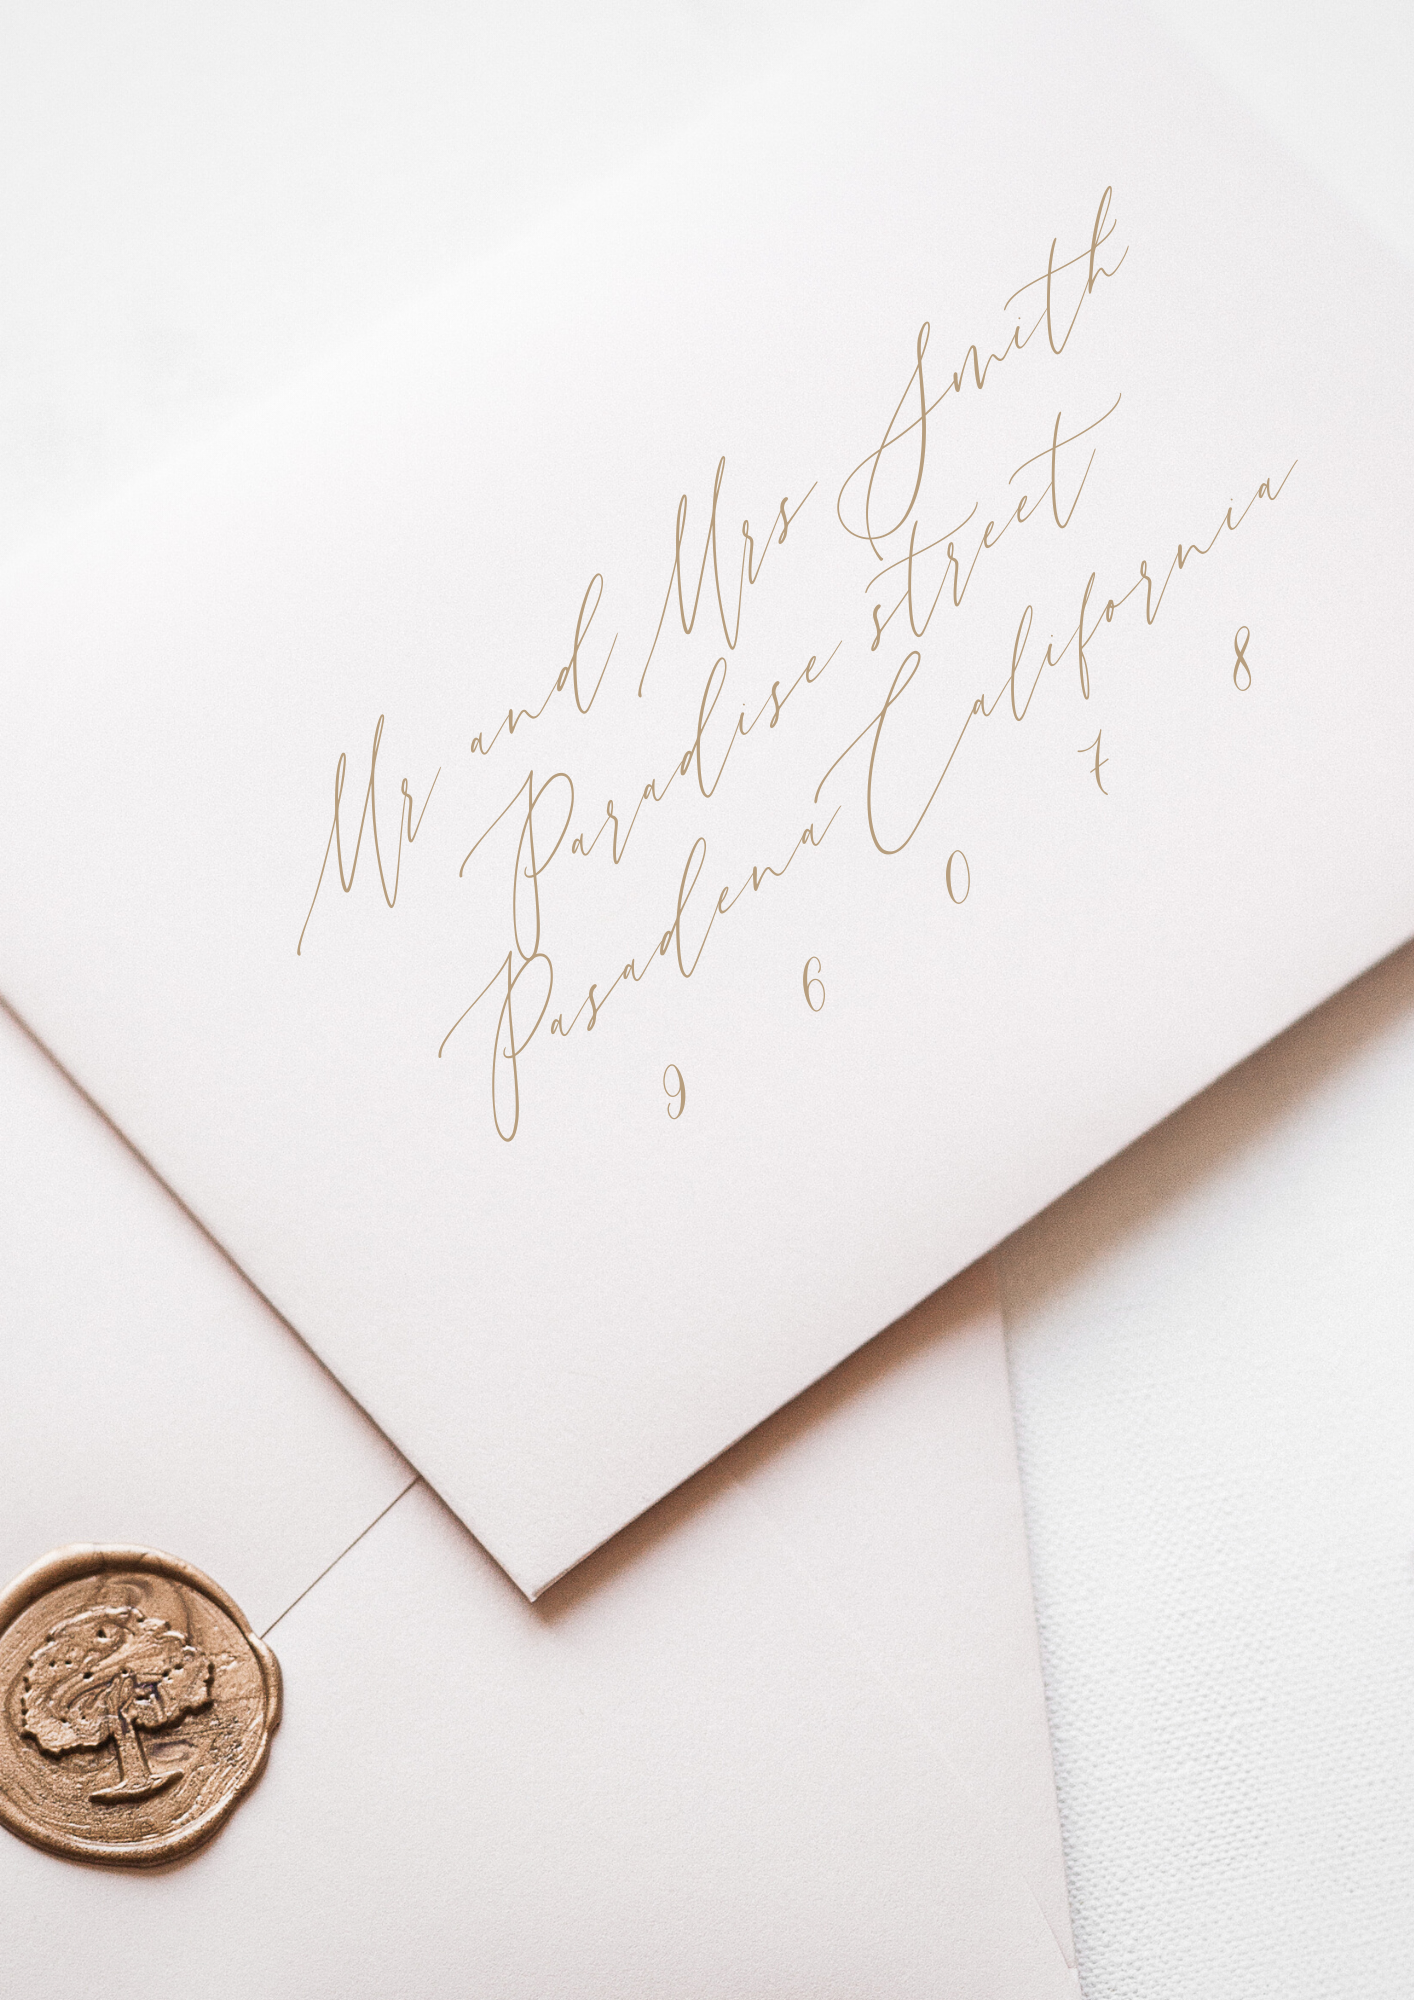 Mr and Mrs Smith
Paradise street
Pasadena California
9 6 0 7 8